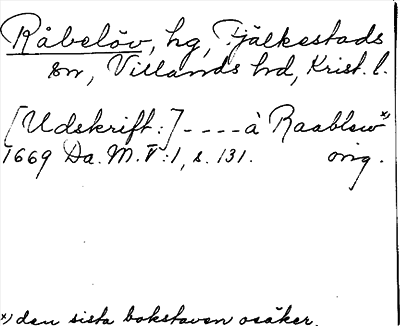 Råbelöv, hg, Fjälkestads
sn, Villands hd, Krist. l.
[Udskrift:] - - - - à Raablew*)
1669 Da. M. V:1, s. 131. orig.
*) den sista bokstaven osäker.